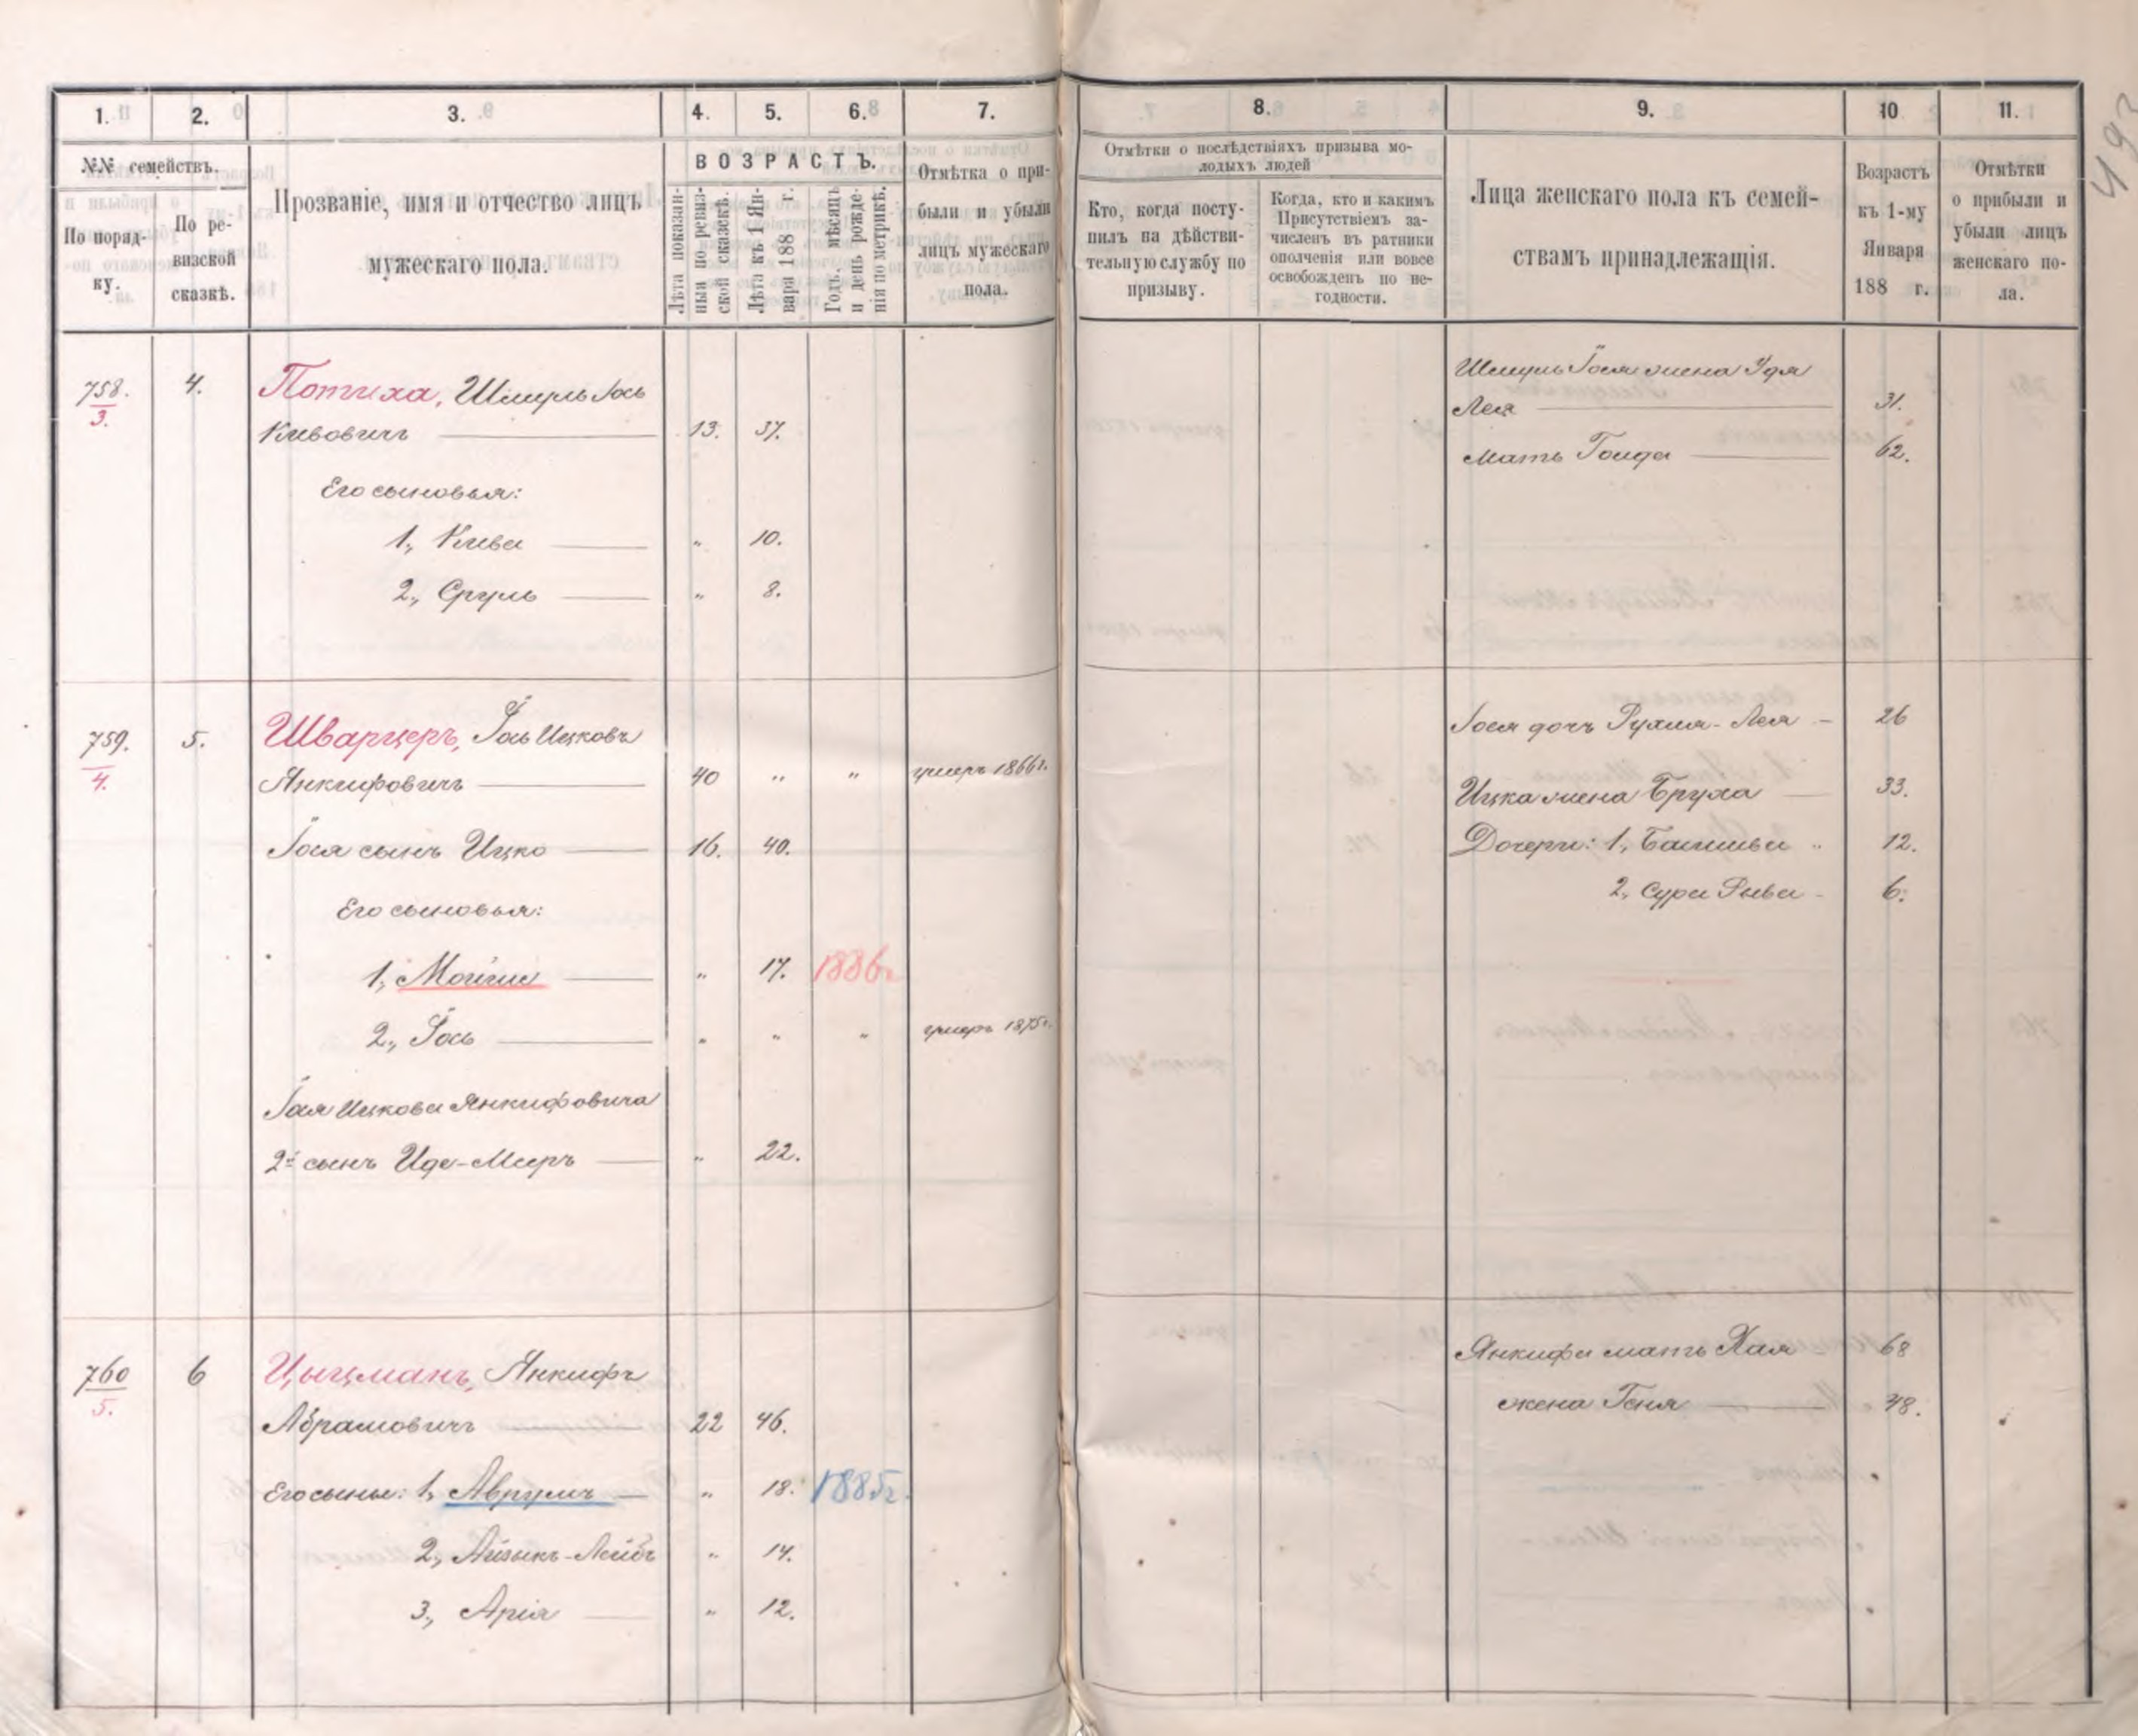 493
1. 2. 3. 4. 5. 6. 7. 8. 9. 10 11.
№№ семействъ.
По поряд-
ку.
По ре-
визской
сказкѣ.
Прозваніе, имя и отчество лицъ
мужескаго пола.
ВОЗРАСТЪ.
Лѣта показан-
ныя по ревиз-
ской сказскѣ.
Лѣта къ 1 Ян-
варя 188 г.
Годъ, мѣсяцъ
и день рожде-
нія по метрикѣ.
Отмѣтка о при-
были и убыли
лицъ мужескаго
пола.
Отмѣтки о послѣдствіяхъ призыва мо-
лодыхъ людей
Кто, когда посту-
пилъ на дѣйстви-
тельную службу по
призыву.
Когда, кто и какимъ
Присутствіемъ за-
численъ въ ратники
ополченія или вовсе
освобожденъ по не-
годности.
Лица женскаго пола къ семей-
ствамъ принадлежащія.
Возрастъ
къ 1-му
Января
188 г.
Отмѣтки
о прибыли и
убыли лицъ
женскаго по-
ла.
758. 4. Потиха, Шмуль Іось
3. Кивовичъ 13. 37.
Его сыновья:
1, Кива " 10.
2, Сруль " 8.
Шмуль Іося жена Удя
Лея 31.
Мать Гоида 62.
759. 5. Шварцеръ, Іось Ицковъ
4. Янкифовичъ 40 " " умеръ 1866г.
Іося сынъ Ицко 16. 40.
Его сыновья:
1, Мойше " 17. 1886г
2, Іось " " " умеръ 1875г.
Іося Ицкова Янкифовича
2й сынъ Иде-Мееръ " 22.
Іося дочь Рухля-Лея 26
Ицка жена Бруха 33.
Дочери: 1, Башива " 12.
2, Сура Рыва 6.
760 6 Цыцманъ, Янкифъ
5. Абрамовичъ 22 46.
Его сыны: 1, Аврумъ " 18. 1885г.
2, Айзыкъ-Лейбъ " 14.
3, Арія " 12.
Янкифа мать Хая 68
жена Геня 48.